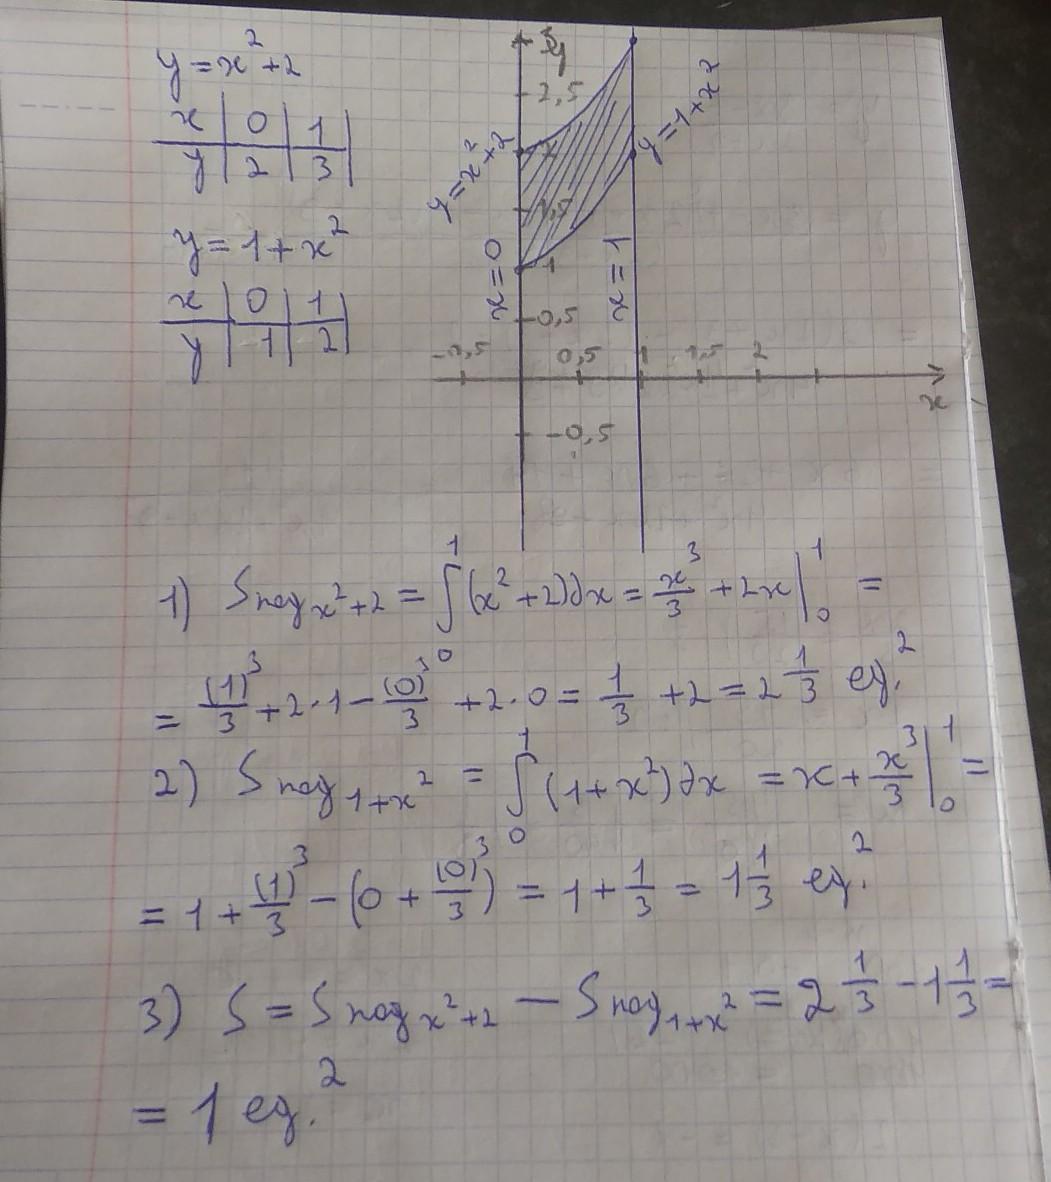 y = x² + 2
x | 0 | 1
y | 2 | 3
y = 1 + x²
x | 0 | 1
y | 1 | 2
3 y
2,5
2
1,5
1
0,5
-0,5 0,5 1 1,5 2
x
-0,5
y = x² + 2
y = 1 + x²
x = 0
x = 1
1) Sпод x²+2 = ∫₀¹ (x² + 2)dx = x³/3 + 2x |₀¹ =
= (1)³/3 + 2·1 - (0)³/3 + 2·0 = 1/3 + 2 = 2 1/3 ед.²
2) Sпод 1+x² = ∫₀¹ (1 + x²)dx = x + x³/3 |₀¹ =
= 1 + (1)³/3 - (0 + (0)³/3) = 1 + 1/3 = 1 1/3 ед.²
3) S = Sпод x²+2 - Sпод 1+x² = 2 1/3 - 1 1/3 =
= 1 ед.²